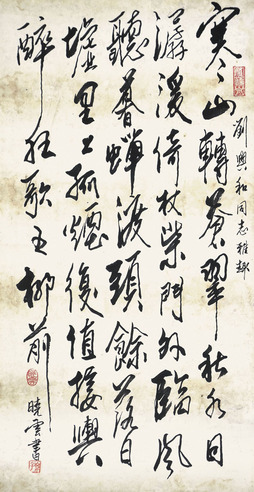 劉興和同志雅趣
寒山轉蒼翠秋水日
潺湲倚杖柴門外臨風
聽暮蟬渡頭餘落日
墟里上孤煙復值接輿
醉狂歌五柳前
曉雲書